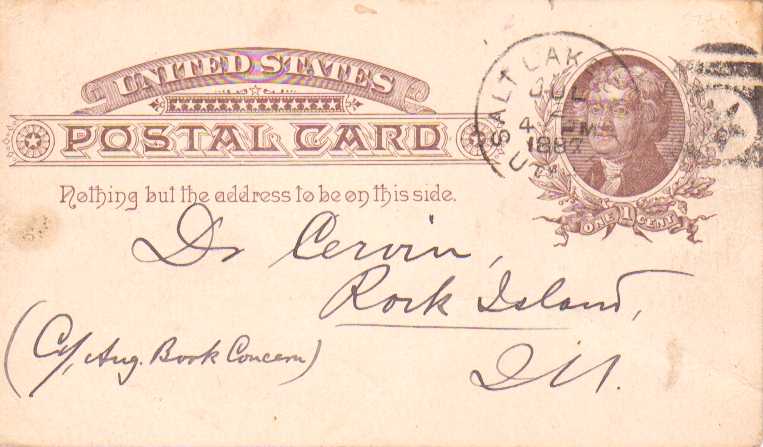 UNITED STATES
POSTAL CARD
Nothing but the address to be on this side.
SALT LAKE
JUL
4 PM
1887
UTAH
ONE 1 CENT
Dr Cervin,
Rock Island,
(C/, Aug. Book Concern)
Ill.